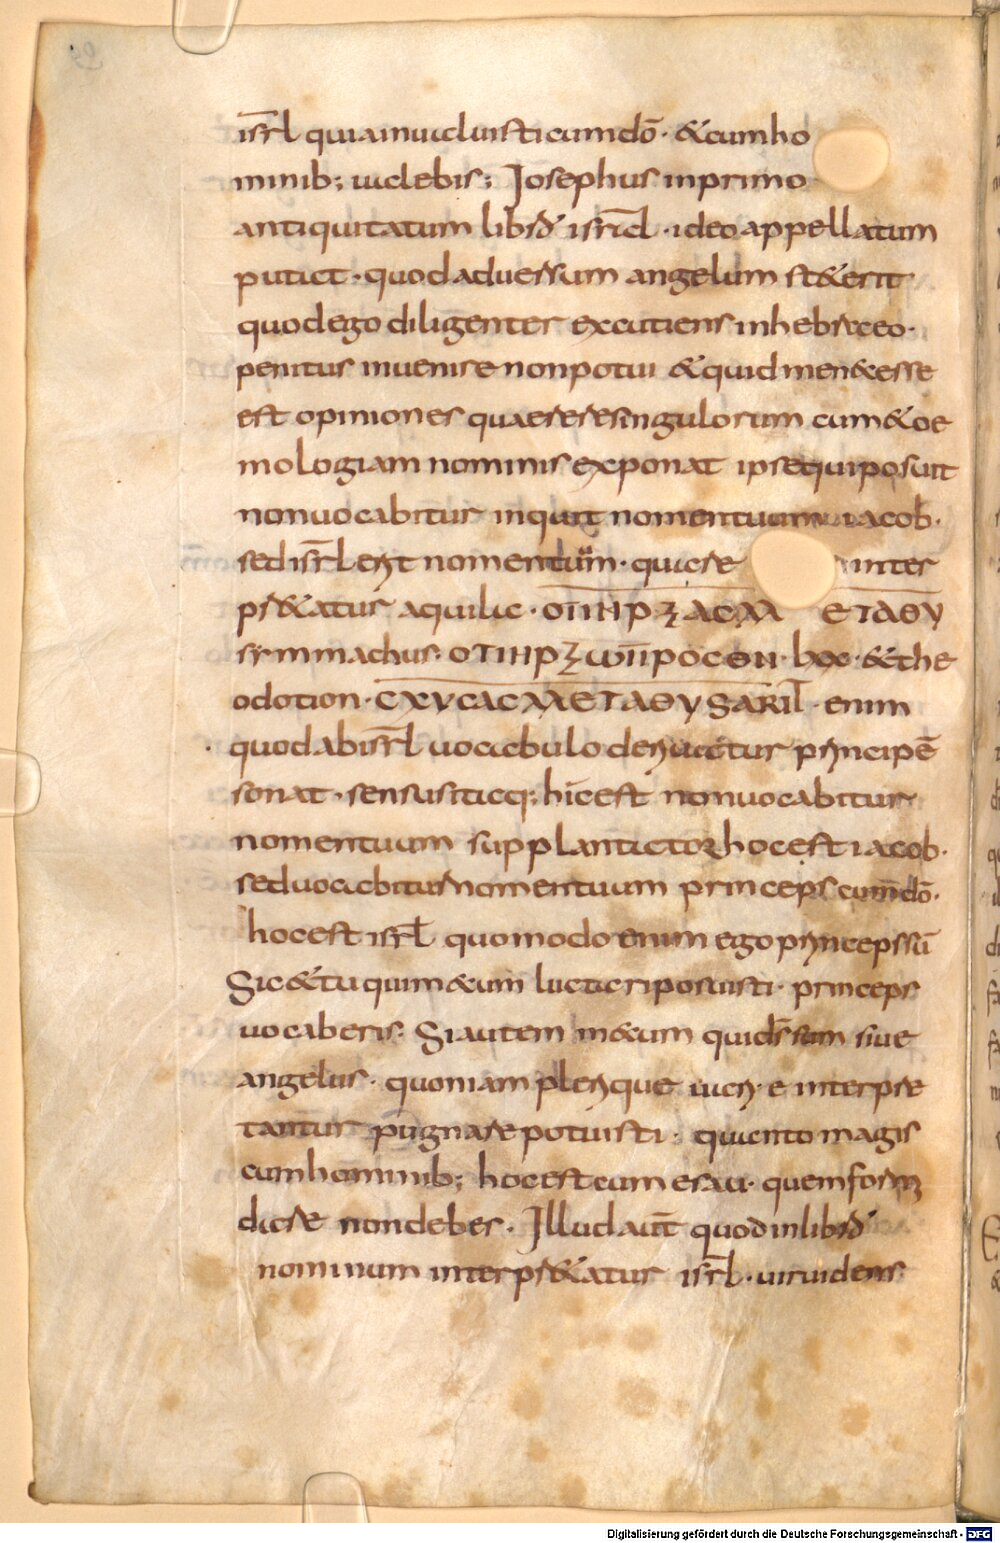 isr̄l quiainualuisti cum dō · & cum ho
minib; ualebis; Josephus inprimo
antiquitatum libro isr̄al · ideo appellatum
putat · quod aduersum angelum st&erit
quod ego diligenter excutiens in hebraeo ·
penitus inuenire non potui & quid me necesse
est opiniones quaerere singulorum cum & oe
mologiam nominis exponat ipse qui posuit
non uocabitur inquit nomen tuum iacob ·
sed isr̄l erit nomen tuum · quare inter
pr&atur aquila · ΟΤΙΗΡΞΑϹΜ ΕΤΑΘΥ
symmachus · ΟΤΙΗΡΞΩΠΡΟϹΘΝ · hoc · & the
odotion · ϹΧΥϹΑϹΜΕΤΑΘΥ SARIL · enim
quod ab isr̄l uocabulo deriuatur principē
sonat · sensus itaq; hic est non uocabitur
nomen tuum supplantator hoc est iacob ·
sed uocabitur nomen tuum princeps cum dō ·
hoc est isr̄l quomodo enim ego princeps sū
Sic & tu qui mecum luctari potuisti · princeps
uocaberis · Si autem mecum qui d̄s sum siue
angelus · quoniam plerique uari e interpre
tantur pugnare potuisti · quanto magis
cum hominib; hoc est cum esau · quem formi
dare non debes · Illud aūt quod in libro
nominum interpr&atur isr̄l · uir uidens